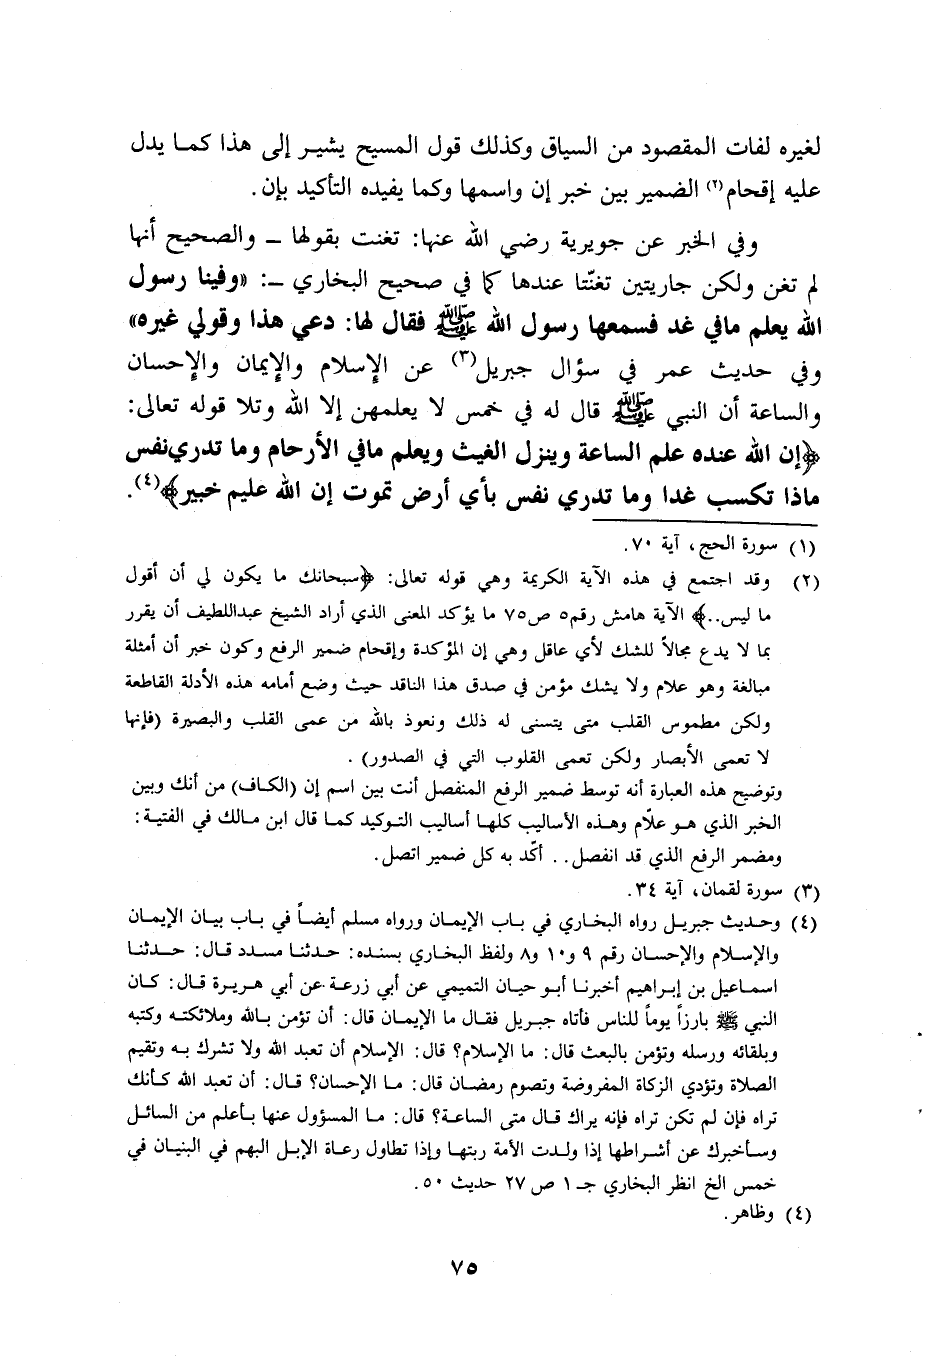 لغيره لفات المقصود من السياق وكذلك قول المسيح يشير إلى هذا كما يدل
عليه إقحام(٢) الضمير بين خبر إن واسمها وكما يفيده التأكيد بإن.
وفي الخبر عن جويرية رضي الله عنها: تغنت بقولها ــ والصحيح أنها
لم تغن ولكن جاريتين تغنّتا عندها كما في صحيح البخاري ــ: «وفينا رسول
الله يعلم مافي غد فسمعها رسول الله ﷺ فقال لها: دعي هذا وقولي غيره»
وفي حديث عمر في سؤال جبريل(٣) عن الإسلام والإيمان والإحسان
والساعة أن النبي ﷺ قال له في خمس لا يعلمهن إلا الله وتلا قوله تعالى:
﴿إن الله عنده علم الساعة وينزل الغيث ويعلم مافي الأرحام وما تدري نفس
ماذا تكسب غدا وما تدري نفس بأي أرض تموت إن الله عليم خبير﴾(٤).
(١) سورة الحج، آية ٧٠.
(٢) وقد اجتمع في هذه الآية الكريمة وهي قوله تعالى: ﴿سبحانك ما يكون لي أن أقول
ما ليس..﴾ الآية هامش رقم٥ ص٧٥ ما يؤكد المعنى الذي أراد الشيخ عبداللطيف أن يقرر
بما لا يدع مجالاً للشك لأي عاقل وهي إن المؤكدة وإقحام ضمير الرفع وكون خبر أن أمثلة
مبالغة وهو علام ولا يشك مؤمن في صدق هذا الناقد حيث وضع أمامه هذه الأدلة القاطعة
ولكن مطموس القلب متى يتسنى له ذلك ونعوذ بالله من عمى القلب والبصيرة (فإنها
لا تعمى الأبصار ولكن تعمى القلوب التي في الصدور) .
وتوضيح هذه العبارة أنه توسط ضمير الرفع المنفصل أنت بين اسم إن (الكاف) من أنك وبين
الخبر الذي هو علّام وهذه الأساليب كلها أساليب التوكيد كما قال ابن مالك في الفتية:
ومضمر الرفع الذي قد انفصل.. أكّد به كل ضمير اتصل.
(٣) سورة لقمان، آية ٣٤.
(٤) وحديث جبريل رواه البخاري في باب الإيمان ورواه مسلم أيضاً في باب بيان الإيمان
والإسلام والإحسان رقم ٩ و١٠ و٨ ولفظ البخاري بسنده: حدثنا مسدد قال: حدثنا
اسماعيل بن إبراهيم أخبرنا أبو حيان التميمي عن أبي زرعة عن أبي هريرة قال: كان
النبي ﷺ بارزاً يوماً للناس فأتاه جبريل فقال ما الإيمان قال: أن تؤمن بالله وملائكته وكتبه
وبلقائه ورسله وتؤمن بالبعث قال: ما الإسلام؟ قال: الإسلام أن تعبد الله ولا تشرك به وتقيم
الصلاة وتؤدي الزكاة المفروضة وتصوم رمضان قال: ما الإحسان؟ قال: أن تعبد الله كأنك
تراه فإن لم تكن تراه فإنه يراك قال متى الساعة؟ قال: ما المسؤول عنها بأعلم من السائل
وسأخبرك عن أشراطها إذا ولدت الأمة ربتها وإذا تطاول رعاة الإبل البهم في البنيان في
خمس الخ انظر البخاري جـ ١ ص ٢٧ حديث ٥٠.
(٤) وظاهر.
٧٥